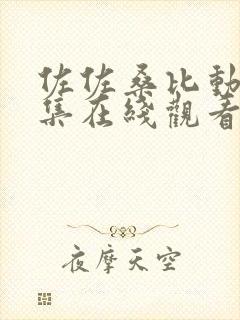 佐佐桑比動
集在綫觀看
夜摩天空